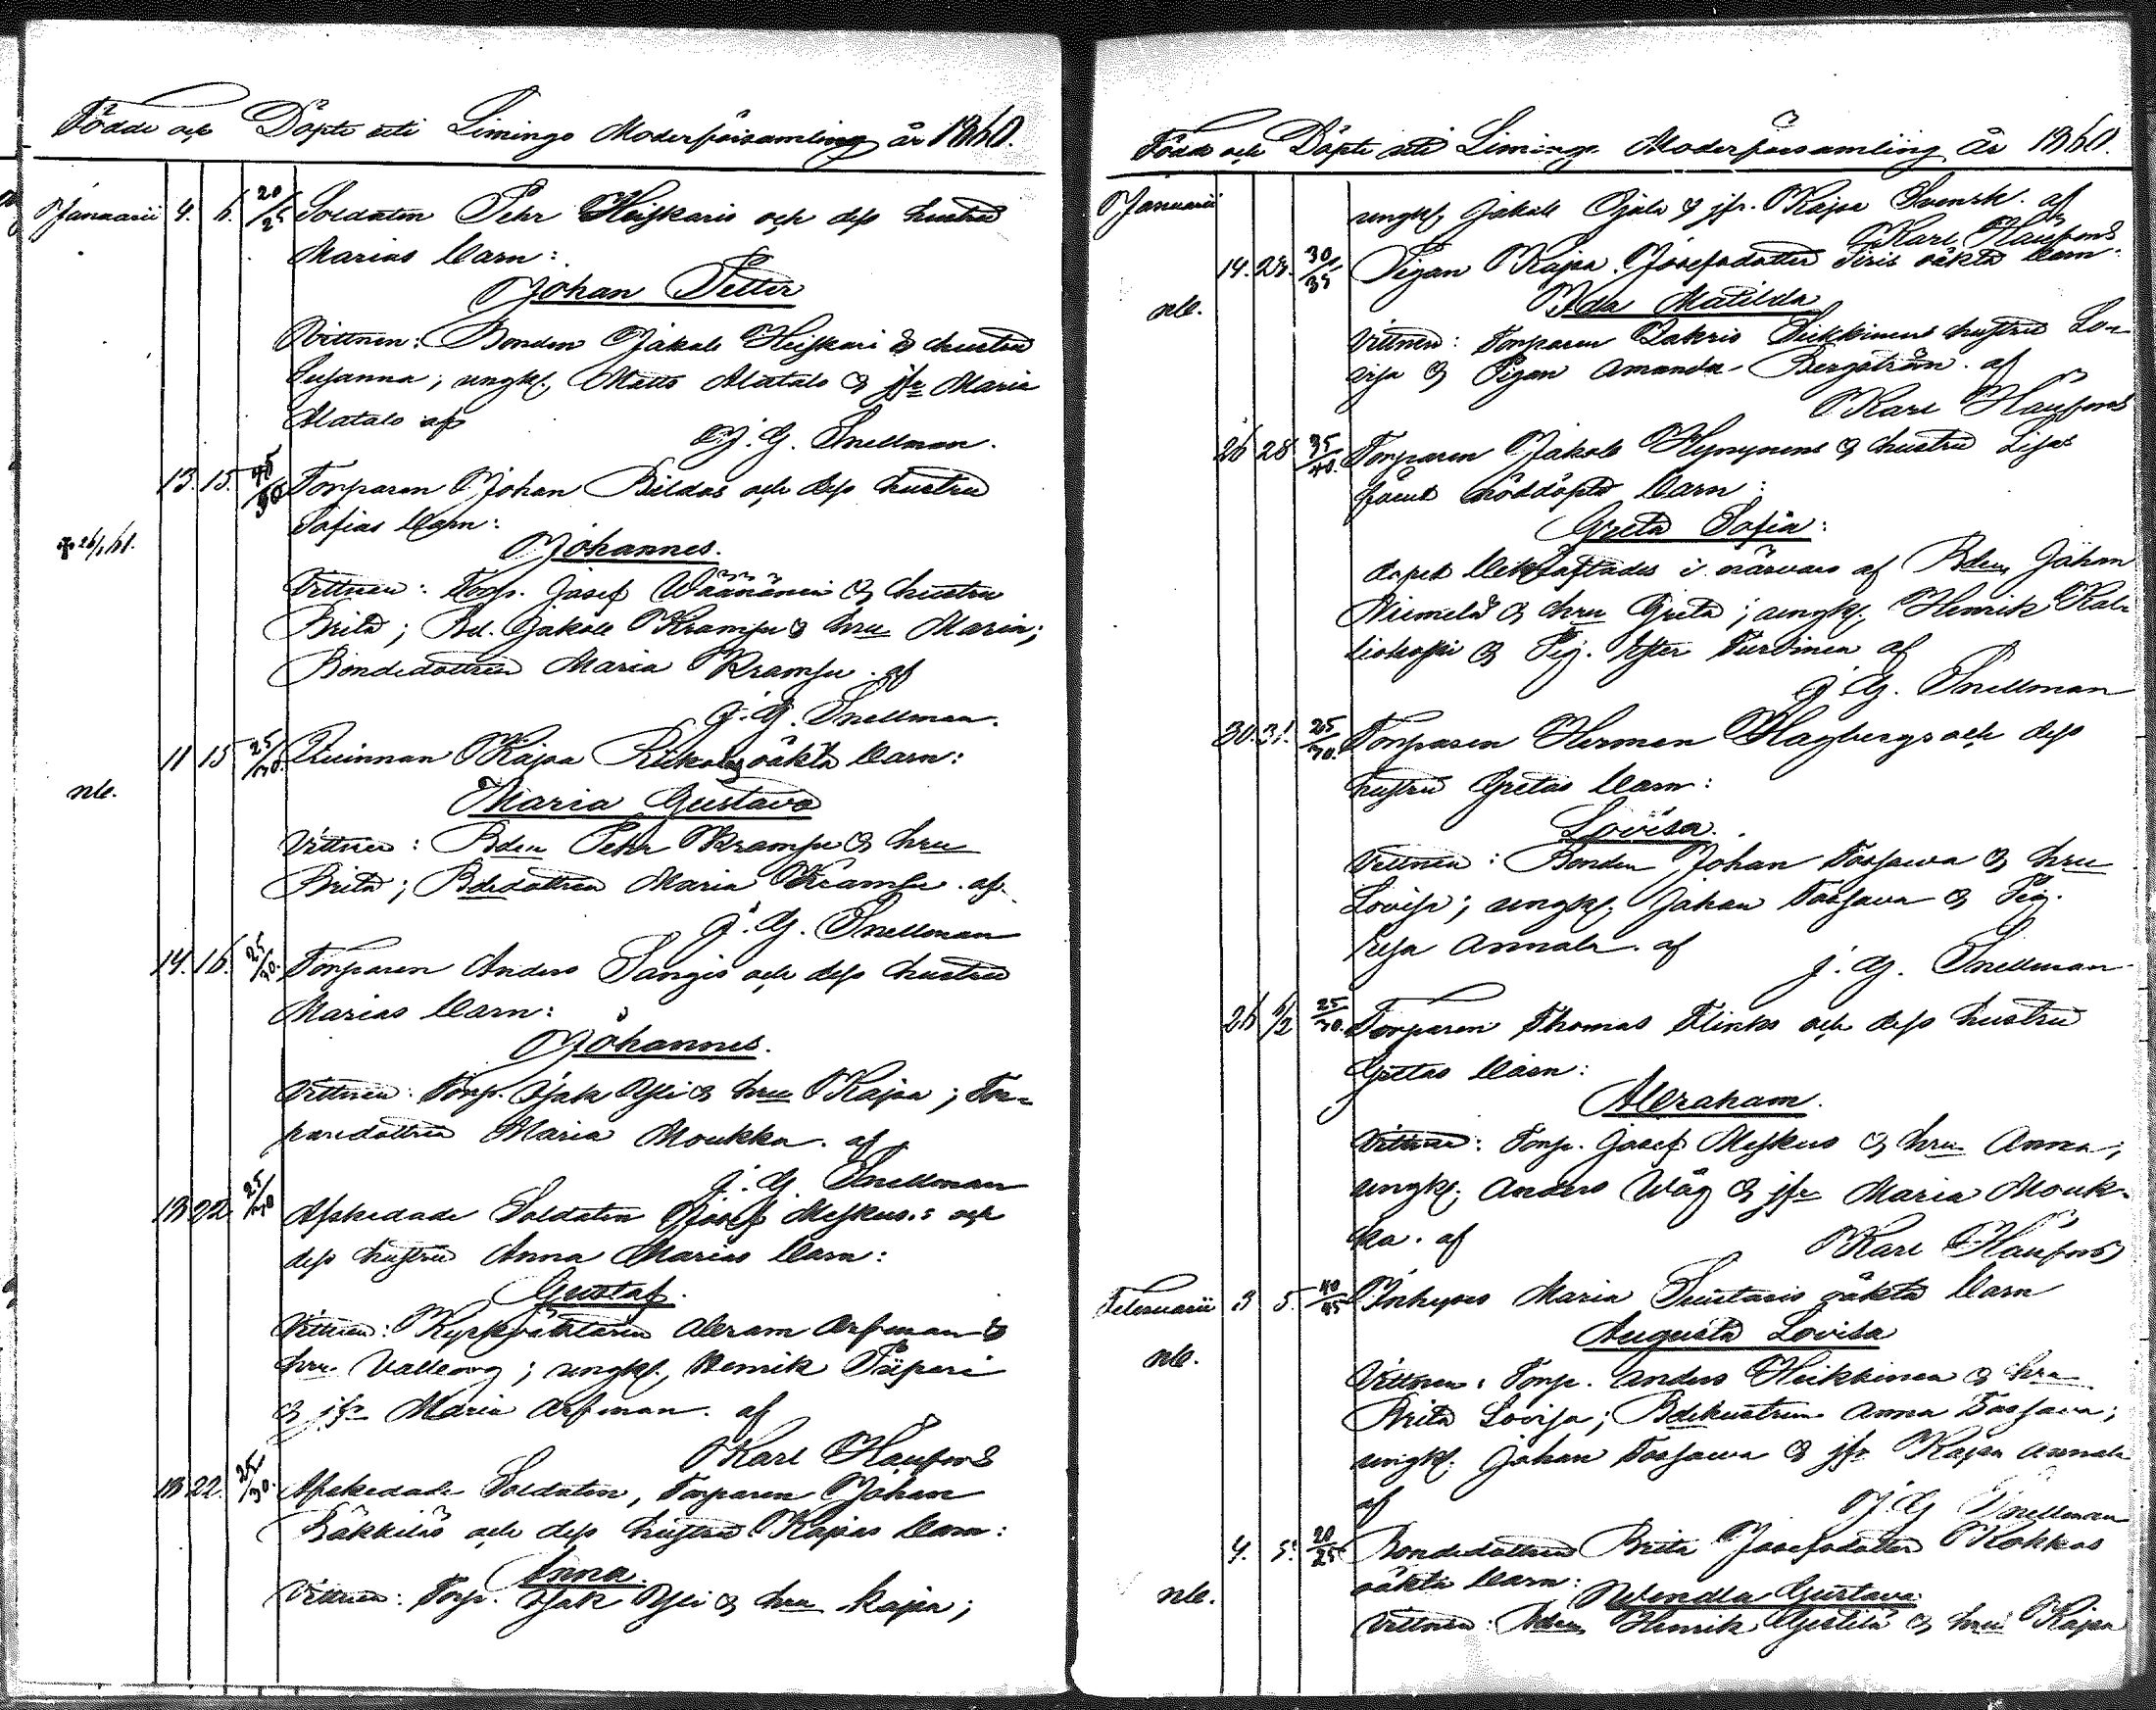 Födde och Döpte uti Limingo Moderförsamling år 1860.
Januarii 4. 6. 20/25 Soldaten Pehr Heiskaris och dess hustru
Marias barn:
Johan Petter
Vittnen: Bonden Jakob Heiskari & hustru
Susanna; ungk. Matts Alatalo & jfr Maria
Alatalo af
J. G. Snellman.
13. 15. 45/50 Torparen Johan Bildos och dess hustru
Sofias barn:
† 26/1 61.
Johannes.
Vittnen: Torp. Josef Wäänänen & hustru
Brita; Bd. Jakob Krampu & hru Maria;
Bondedottren Maria Krampu. af
J. G. Snellman.
11 15 25/30. Qvinnan Kajsa oäkta barn:
nb.
Maria Gustava
Vittnen: Bden Pehr Krampu & hru
Brita; Bdedottren Maria Krampu. af
J. G. Snellman
14. 16. 25/30. Torparen Anders Sangis och dess hustru
Marias barn:
Johannes.
Vittnen: Torp. Jak Yli & hru Kajsa; Tor-
paredottren Maria Moukka. af
J. G. Snellman
18 22 25/30 Afskedade Soldaten Josef Meskus:s och
dess hustru Anna Marias barn:
Gustaf.
Vittnen: Kyrkväktaren Abram Arfman &
hru Valborg; ungk. Henrik Piiperi
& jfr Maria Arfman. af
Karl Haufors
18 22. 25/30. Afskedade Soldaten, Torparen Johan
Räkkiläs och dess hustru Kajsas barn:
Anna.
Vittnen: Torp. Jak Yli & hru Kajsa;
Födde och Döpte uti Limingo Moderförsamling År 1860.
Januarii
ungk. Jakob Ojala & jfr. Kajsa Svensk. af
Karl Haufors
14. 24. 30/35 Pigan Kajsa Josefsdotter Piris oäkta barn.
nb.
Ida Matilda
Vittnen: Torparen Zakris Heikkinens hustru Lo-
visa & Pigan Amanda Bergström. af
Karl Haufors
26 28 35/40. Torparen Jakob Hynynens & hustru Lisas
förut nöddöpta barn:
Greta Sofia:
dopet bekräftades i närvaro af Bden Johan
Niemelä & hru Greta; ungk. Henrik Kal-
liokoski & Pig. Ester Turvinen af
J. G. Snellman
30. 31. 25/30. Torparen Herman Hagbergs och dess
hustru Gretas barn:
Lovisa.
Vittnen: Bonden Johan Tossawa & hru
Lovisa; ungk. Johan Tossava & Pig.
Elsa Annala. af
J. G. Snellman
26 5/2 25/30. Torparen Thomas Flinks och dess hustru
Gretas barn:
Abraham.
Vittnen: Torp. Josef Meskus & hru Anna;
ungk. Anders Wåg & jfr Maria Mouk-
ka. af
Karl Haufors
Februarii 3 5. 40/45 Inhyses Maria Suutaris oäkta barn
Augusta Lovisa
nb.
Vittnen: Torp. Anders Heikkinen & hru
Brita Lovisa; Bdehustrun Anna Tossava;
ungk. Johan Tossawa & jfr Kajsa Annala
af
J. G Snellman
4. 5. 20/25 Bondedottren Brita Josefsdotter Kokkos
oäkta barn:
nb.
Wendla Gustava.
Vittnen: Bden Henrik & hru Kajsa